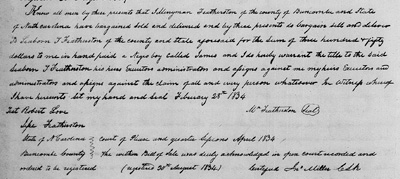 Know all men by these presents that I Merryman Featherston of the county of Buncombe and State
of North carolina have bargained sold and delivered and by these presents do bargain sell and deliver
To Leabourn F Featherston of the county and State aforesaid for the Sum of three hundred & fifty
dollars to me in hand paid a Negro boy Called James and I do hereby warrant the title to the said
Leabourn F Featherston his heirs Executors administrators and assigns against me my heirs Executors and
administrators and assigns against the claim of all and every person whatsoever In Witness whereof
I have hereunto set my hand and seal February 28th 1834
Test Robert Love Mn Featherston Seal
Featherston
State of N Carolina court of Pleas and quarter Sessions April 1834
Buncombe County the within Bill of Sale was duly acknowledged in open court recorded and
ordered to be registered (registered 30th August 1834) Miller Clk